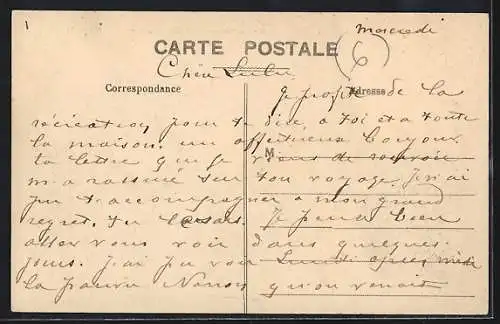 1
mercredi
6
CARTE POSTALE
Chère Lulu
Correspondance
Adresse
M
Je profite de la
récréation, pour te dire à toi et à toute
la maison un affectueux bonjour
ta lettre que je viens de recevoir
m'a rassuré sur ton voyage, je n'ai
pu t'accompagner à mon grand
regret. Je pense bien
aller vous voir dans quelques
jours. J'ai pu voir Lundi après midi
la pauvre Nanon qu'on venait